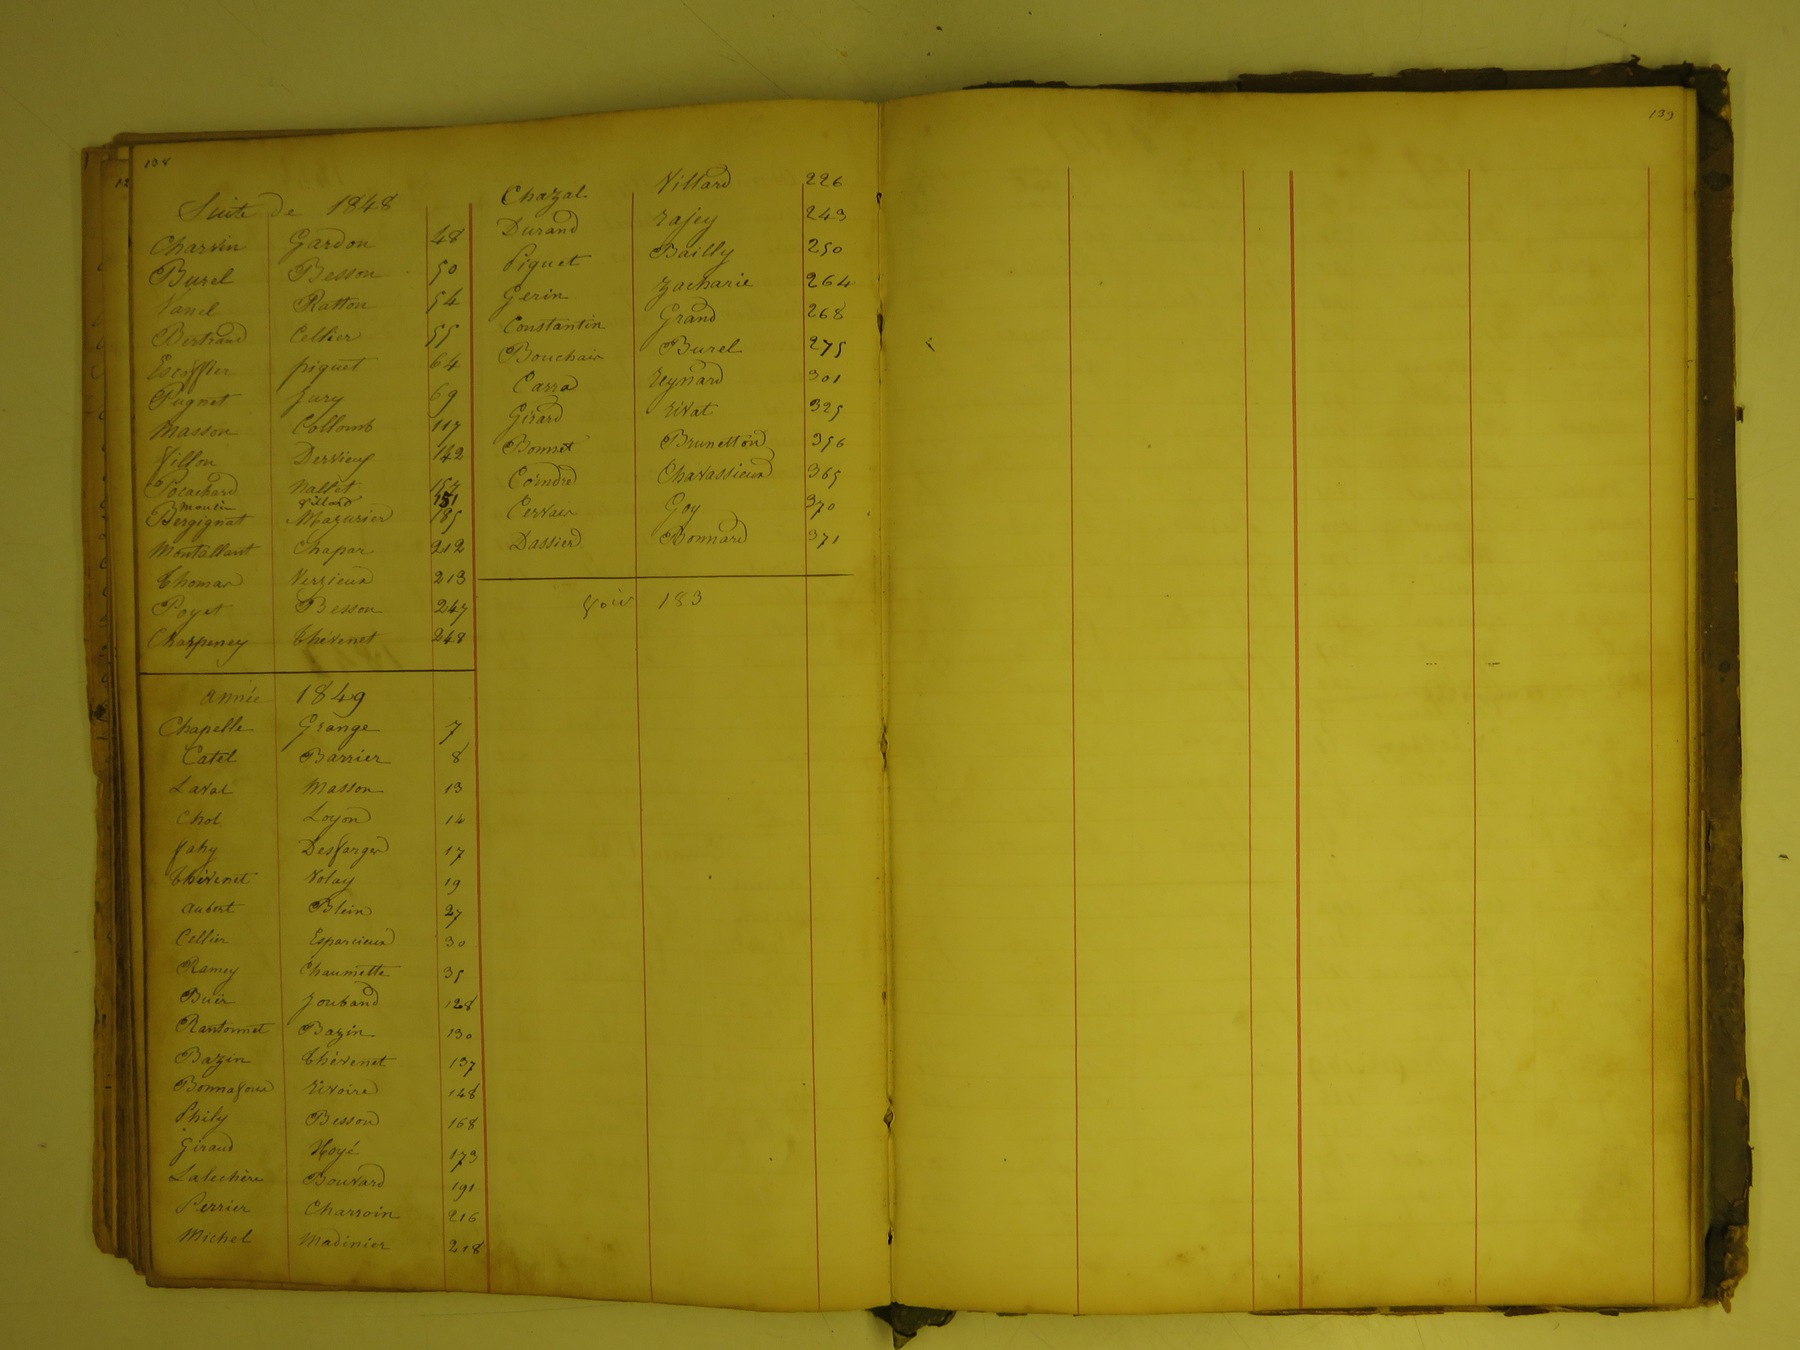 138
Suite de 1848
Charvin Gardon 48
Burel Besson 50
Vanel Ratton 54
Bertrand Cellier 55
Escoffier piquet 64
Pugnet Jury 69
Masson Collomb 117
Villon Dervieux 142
Pocachard Nallet
Moulin Villard 151
Bergignat Mazurier 185
Montallant Chapar 212
Thomas Verrieux 213
Poyet Besson 247
Charpeney Thévenet 248
année 1849
Chapelle Grange 7
Catel Barrier 8
Laval Masson 13
Chol Loyon 14
Fahy Desfarges 17
Thévenet Volay 19
Aubert Blein 27
Cellier Esparcieux 30
Ramey Chaumette 35
Buër Jouband 128
Rantonnet Bazin 130
Bazin Thévenet 137
Bonnafous Rivoire 148
Phily Besson 168
Giraud Noyé 173
Lalechère Bouvard 191
Perrier Charroin 216
Michel Madinier 218
Chazal Villard 226
Durand Rajey 243
Piquet Bailly 250
Gerin Zacharie 264
Constantin Grand 268
Bouchair Burel 275
Carra Reynard 301
Girard Rivat 325
Bonnet Brunetton 356
Coindre Chavassieux 365
Cervas Goy 370
Dassier Bonnard 371
Voir 183
139